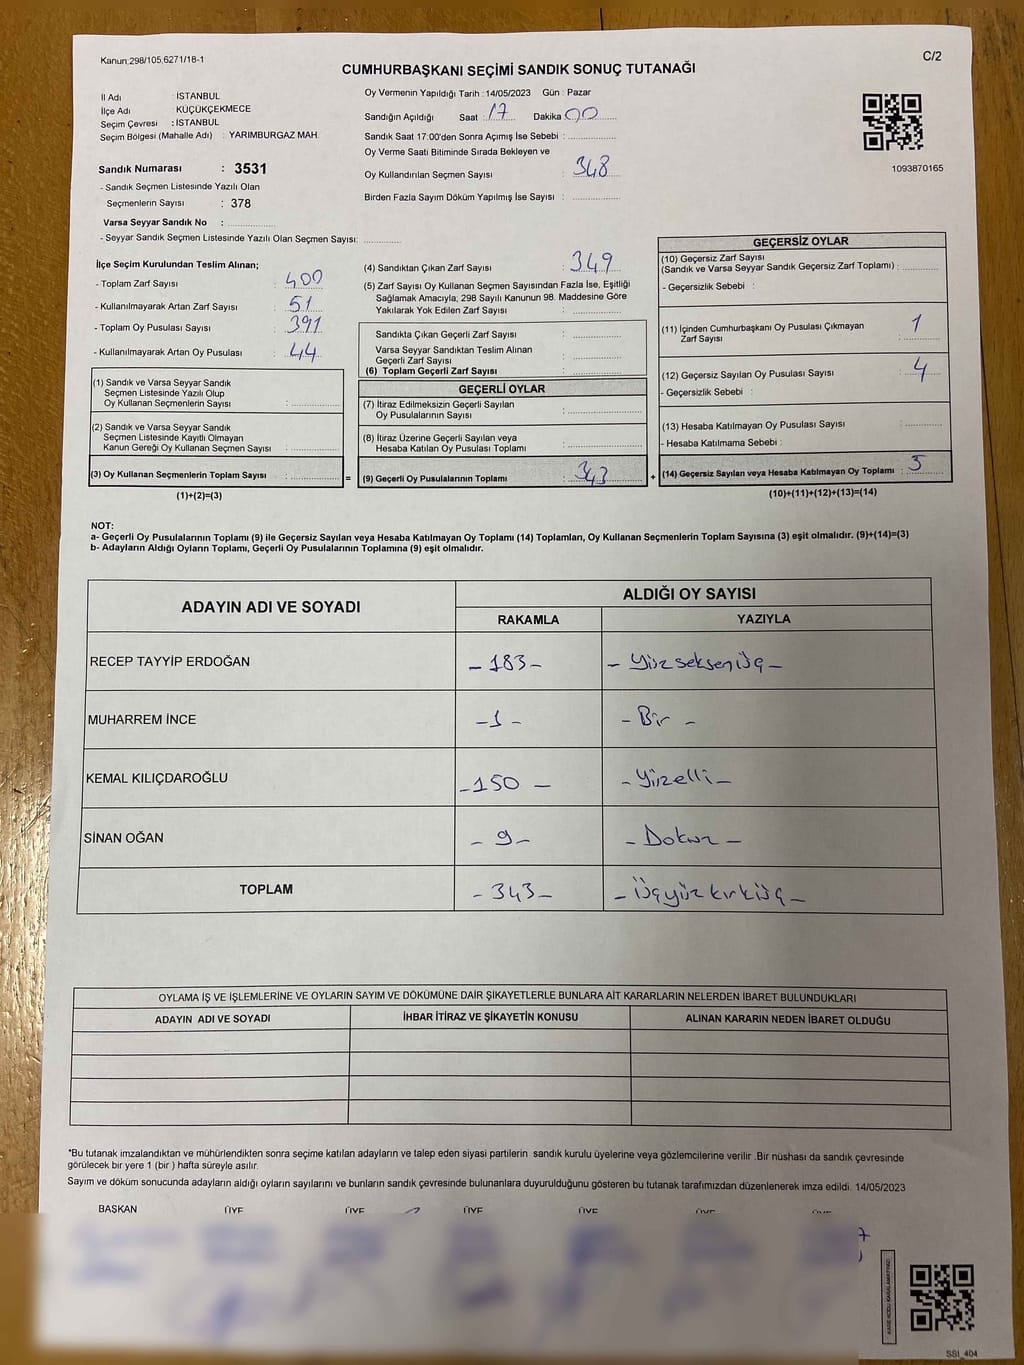 Kanun;298/105,6271/18-1
C/2
CUMHURBAŞKANI SEÇİMİ SANDIK SONUÇ TUTANAĞI
İl Adı : İSTANBUL
İlçe Adı : KÜÇÜKÇEKMECE
Seçim Çevresi : İSTANBUL
Seçim Bölgesi (Mahalle Adı) : YARIMBURGAZ MAH.
Sandık Numarası : 3531
- Sandık Seçmen Listesinde Yazılı Olan
Seçmenlerin Sayısı : 378
Varsa Seyyar Sandık No :
- Seyyar Sandık Seçmen Listesinde Yazılı Olan Seçmen Sayısı:
Oy Vermenin Yapıldığı Tarih : 14/05/2023 Gün : Pazar
Sandığın Açıldığı Saat : 17 Dakika 00
Sandık Saat 17:00'den Sonra Açımış İse Sebebi :
Oy Verme Saati Bitiminde Sırada Bekleyen ve
Oy Kullandırılan Seçmen Sayısı : 348
Birden Fazla Sayım Döküm Yapılmış İse Sayısı :
1093870165
İlçe Seçim Kurulundan Teslim Alınan;
- Toplam Zarf Sayısı : 400
- Kullanılmayarak Artan Zarf Sayısı : 51
- Toplam Oy Pusulası Sayısı : 391
- Kullanılmayarak Artan Oy Pusulası : 44
(1) Sandık ve Varsa Seyyar Sandık
Seçmen Listesinde Yazılı Olup
Oy Kullanan Seçmenlerin Sayısı :
(2) Sandık ve Varsa Seyyar Sandık
Seçmen Listesinde Kayıtlı Olmayan
Kanun Gereği Oy Kullanan Seçmen Sayısı :
(3) Oy Kullanan Seçmenlerin Toplam Sayısı : =
(1)+(2)=(3)
(4) Sandıktan Çıkan Zarf Sayısı : 349
(5) Zarf Sayısı Oy Kullanan Seçmen Sayısından Fazla İse, Eşitliği
Sağlamak Amacıyla; 298 Sayılı Kanunun 98. Maddesine Göre
Yakılarak Yok Edilen Zarf Sayısı :
Sandıkta Çıkan Geçerli Zarf Sayısı :
Varsa Seyyar Sandıktan Teslim Alınan
Geçerli Zarf Sayısı :
(6) Toplam Geçerli Zarf Sayısı :
GEÇERLİ OYLAR
(7) İtiraz Edilmeksizin Geçerli Sayılan
Oy Pusulalarının Sayısı :
(8) İtiraz Üzerine Geçerli Sayılan veya
Hesaba Katılan Oy Pusulası Toplamı :
(9) Geçerli Oy Pusulalarının Toplamı : 343 +
GEÇERSİZ OYLAR
(10) Geçersiz Zarf Sayısı
(Sandık ve Varsa Seyyar Sandık Geçersiz Zarf Toplamı) :
- Geçersizlik Sebebi :
(11) İçinden Cumhurbaşkanı Oy Pusulası Çıkmayan
Zarf Sayısı : 1
(12) Geçersiz Sayılan Oy Pusulası Sayısı : 4
- Geçersizlik Sebebi :
(13) Hesaba Katılmayan Oy Pusulası Sayısı :
- Hesaba Katılmama Sebebi :
(14) Geçersiz Sayılan veya Hesaba Katılmayan Oy Toplamı : 5
(10)+(11)+(12)+(13)=(14)
NOT:
a- Geçerli Oy Pusulalarının Toplamı (9) ile Geçersiz Sayılan veya Hesaba Katılmayan Oy Toplamı (14) Toplamları, Oy Kullanan Seçmenlerin Toplam Sayısına (3) eşit olmalıdır. (9)+(14)=(3)
b- Adayların Aldığı Oyların Toplamı, Geçerli Oy Pusulalarının Toplamına (9) eşit olmalıdır.
ADAYIN ADI VE SOYADI
ALDIĞI OY SAYISI
RAKAMLA YAZIYLA
RECEP TAYYİP ERDOĞAN - 183 - - Yüzseksenüç -
MUHARREM İNCE - 1 - - Bir -
KEMAL KILIÇDAROĞLU - 150 - - Yüzelli -
SİNAN OĞAN - 9 - - Dokuz -
TOPLAM - 343 - - Üçyüzkırküç -
OYLAMA İŞ VE İŞLEMLERİNE VE OYLARIN SAYIM VE DÖKÜMÜNE DAİR ŞİKAYETLERLE BUNLARA AİT KARARLARIN NELERDEN İBARET BULUNDUKLARI
ADAYIN ADI VE SOYADI İHBAR İTİRAZ VE ŞİKAYETİN KONUSU ALINAN KARARIN NEDEN İBARET OLDUĞU
*Bu tutanak imzalandıktan ve mühürlendikten sonra seçime katılan adayların ve talep eden siyasi partilerin sandık kurulu üyelerine veya gözlemcilerine verilir .Bir nüshası da sandık çevresinde
görülecek bir yere 1 (bir ) hafta süreyle asılır.
Sayım ve döküm sonucunda adayların aldığı oyların sayılarını ve bunların sandık çevresinde bulunanlara duyurulduğunu gösteren bu tutanak tarafımızdan düzenlenerek imza edildi. 14/05/2023
BAŞKAN ÜYE ÜYE ÜYE ÜYE ÜYE ÜYE
KARE KODU KARALAMAYINIZ!
SSI_404